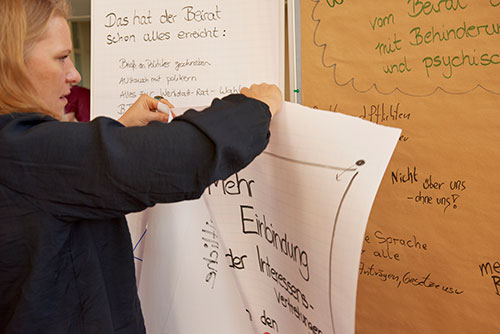 Das hat der Beirat
schon alles erreicht:
Brief an Politiker geschrieben
Austausch mit politikern
Alles zur Werkstatt-Rat-Wahl
Mehr
Einbindung
der Interessens-
vertretungen
den
vom Beirat
mit Behinderun
und psychisc
Nicht über uns
-ohne uns!
Sprache
alle
Anträgen, Gesetze usw